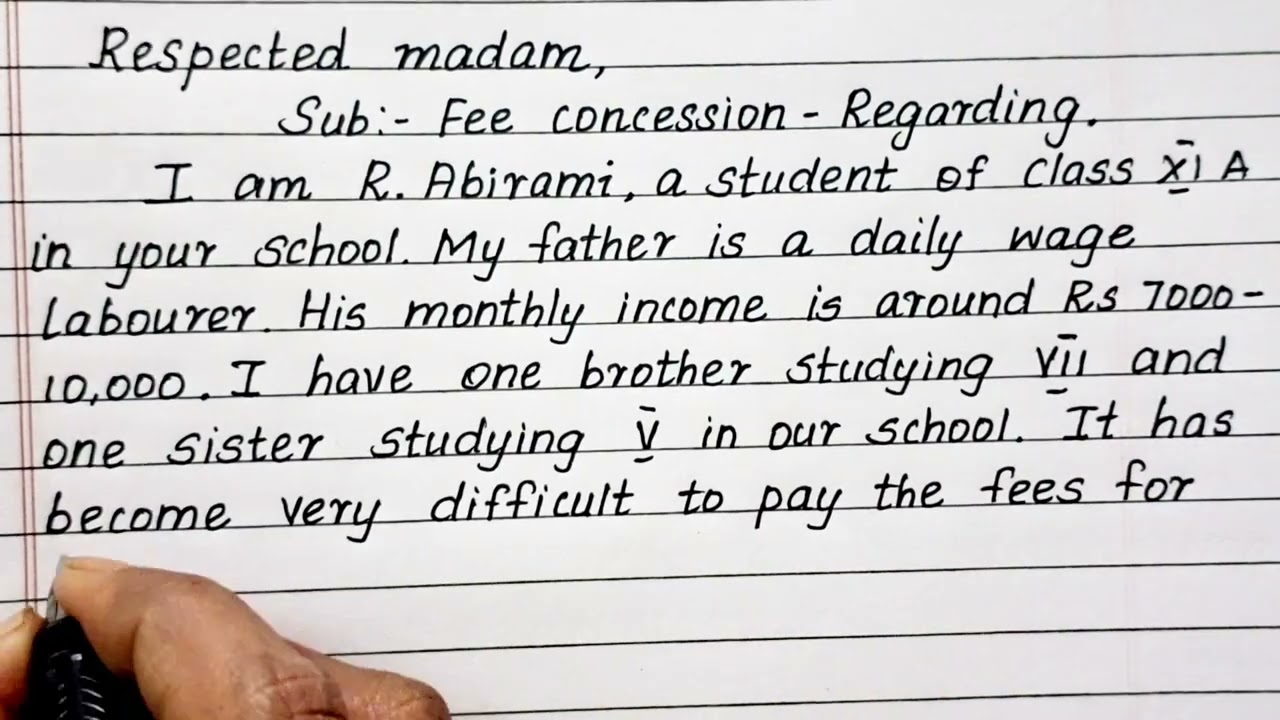 Respected madam,
Sub:- Fee concession - Regarding.
I am R. Abirami, a student of class XI A
in your school. My father is a daily wage
labourer. His monthly income is around Rs 7000-
10,000. I have one brother studying VII and
one sister studying V in our school. It has
become very difficult to pay the fees for